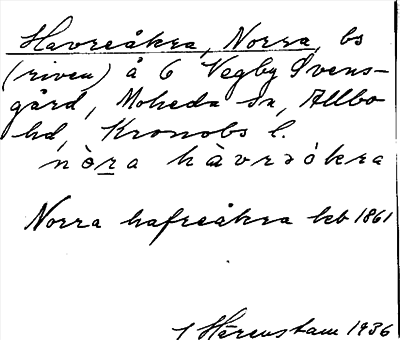 Havreåkra, Norra, bs
(riven) å 6 Vegby Svens-
gård, Moheda sn, Allbo
hd, Kronobs l.
nò̱ra hàvrəökra
Norra hafreåkra kb 1861
J Härenstam 1936